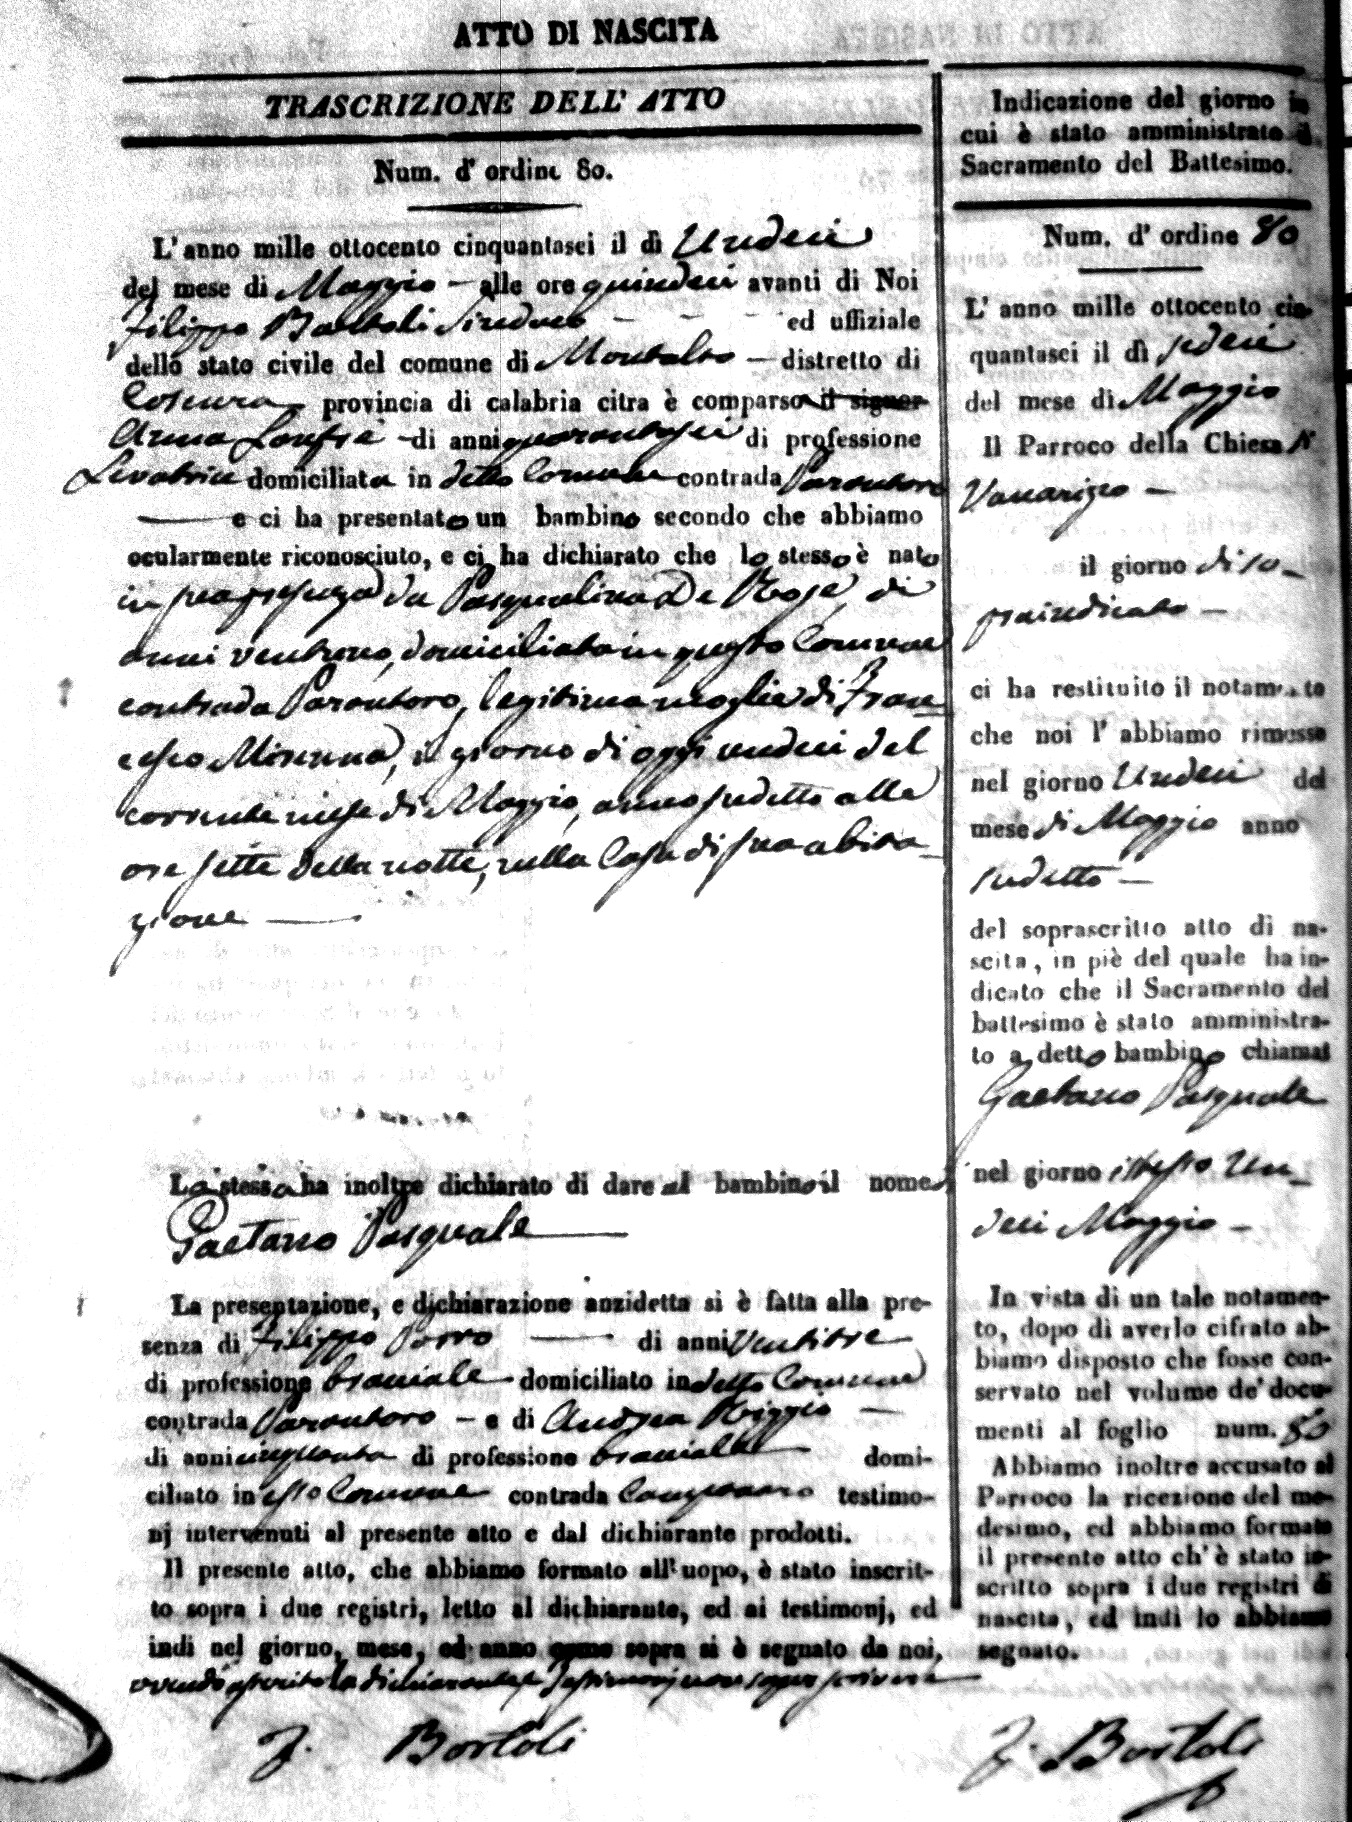 ATTO DI NASCITA
TRASCRIZIONE DELL' ATTO
Num. d' ordine 80.
L' anno mille ottocento cinquantasei il dì Undeci
del mese di Maggio – alle ore quindeci avanti di Noi
Filippo Bartoli Sindaco – – – ed uffiziale
dello stato civile del comune di Montalto – distretto di
Cosenza provincia di calabria citra è comparsa il signor
Anna di anni quarantasei di professione
Levatrice domiciliata in detto Comune contrada Parantoro
e ci ha presentato un bambino secondo che abbiamo
ocularmente riconosciuto, e ci ha dichiarato che lo stesso è nato
in sua presenza da Pasqualina De Rose, di
anni ventuno, domiciliata in questo Comune
contrada Parantoro, legittima moglie di Fran=
cesco il giorno di oggi undeci del
corrente mese di Maggio, anno sudetto alle
ore sette della notte, nella Casa di sua abita=
zione —
La stessa ha inoltre dichiarato di dare al bambino il nome di
Gaetano Pasquale
La presentazione, e dichiarazione anzidetta si è fatta alla pre-
senza di Filippo Porro — di anni Ventitre
di professione braciale domiciliato in detto Comune
contrada Parantoro – e di Andrea Riggio –
di anni cinquanta di professione braciale domi-
ciliato in esso Comune contrada testimo-
nj intervenuti al presente atto e dal dichiarante prodotti.
Il presente atto, che abbiamo formato all' uopo, è stato inscrit-
to sopra i due registri, letto al dichiarante, ed ai testimonj, ed
indi nel giorno, mese, ed anno come sopra si è segnato da noi,
avendo asserito la dichiarante, e testimonj non saper scrivere
F. Bartoli
Indicazione del giorno in
cui è stato amministrato il
Sacramento del Battesimo.
Num. d' ordine 80
L' anno mille ottocento cin-
quantasei il dì sedeci
del mese di Maggio
Il Parroco della Chiesa di
Vaccarizzo –
il giorno di so=
praindicato –
ci ha restituito il notamento
che noi l' abbiamo rimesso
nel giorno Undeci del
mese di Maggio anno
sudetto –
del soprascritto atto di na-
scita, in piè del quale ha in-
dicato che il Sacramento del
battesimo è stato amministra-
to a detto bambino chiamat
Gaetano Pasquale
nel giorno istesso Un=
deci Maggio –
In vista di un tale notamen-
to, dopo di averlo cifrato ab-
biamo disposto che fosse con-
servato nel volume de' docu-
menti al foglio num. 80
Abbiamo inoltre accusato al
Parroco la ricezione del me-
desimo, ed abbiamo formato
il presente atto ch' è stato in-
scritto sopra i due registri di
nascita, ed indi lo abbiamo
segnato.
F. Bartoli